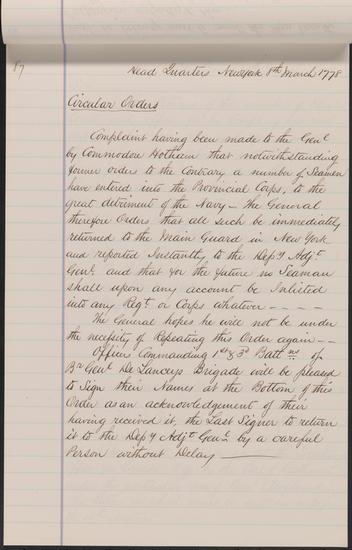 87
Head Quarters Newyork 8th March 1778
Circular Orders
Complaint having been made to the Genl
by Commodore Hotham that notwithstanding
former orders to the Contrary a number of Seamen
have entered into the Provincial Corps, to the
great detriment of the Navy – The General
therefore Orders that all such be immediately
returned to the Main Guard in New York
and reported Instantly to the Depy Adjt
Genl and that for the future no Seaman
shall upon any account be Inlisted
into any Regt or Corps whatever – – – –
The General hopes he will not be under
the necessity of Repeating this Order again – –
Officers Commanding 1st & 3d Battns of
Br Genl De Lanceys Brigade will be pleased
to Sign their Names at the Bottom of this
Order as an acknowledgement of their
having received it, the Last Signer to return
it to the Depy Adjt Genl by a careful
Person without Delay ———